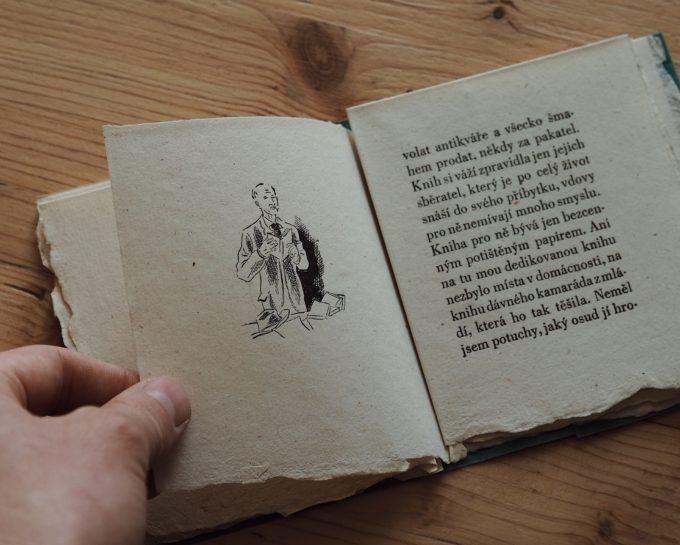 volat antikváře a všecko šma-
hem prodat, někdy za pakatel.
Knih si váží zpravidla jen jejich
sběratel, který je po celý život
snáší do svého příbytku, vdovy
pro ně nemívají mnoho smyslu.
Kniha pro ně bývá jen bezcen-
ným potištěným papírem. Ani
na tu mou dedikovanou knihu
nezbylo místa v domácnosti, na
knihu dávného kamaráda z mlá-
dí, která ho tak těšila. Neměl
jsem potuchy, jaký osud jí hro-